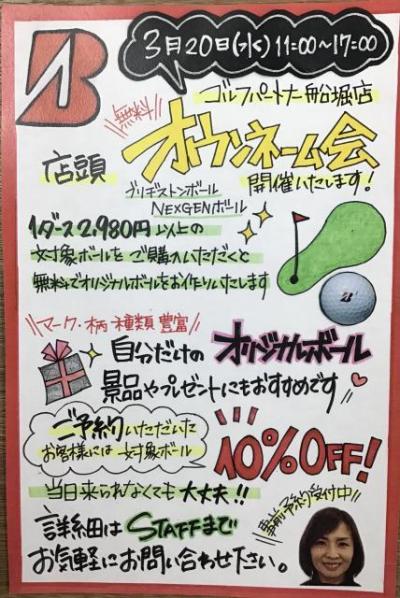 3月20日(水) 11:00〜17:00
ゴルフパートナー船堀店
無料
オウンネーム会
店頭
開催いたします!
ブリヂストンボール
NEXGENボール
1ダース2,980円以上の
対象ボールをご購入いただくと
無料でオリジナルボールをお作りいたします
B
マーク・柄 種類 豊富
自分だけの オリジナルボール
景品やプレゼントにもおすすめです
ご予約いただいた
お客様には 対象ボール
10%OFF!
当日来られなくても大丈夫!!
事前予約受付中
詳細はSTAFFまで
お気軽にお問い合わせ下さい。